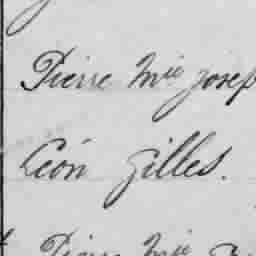 Pierre Mie josep
Léon Gilles.
Pierre Mie